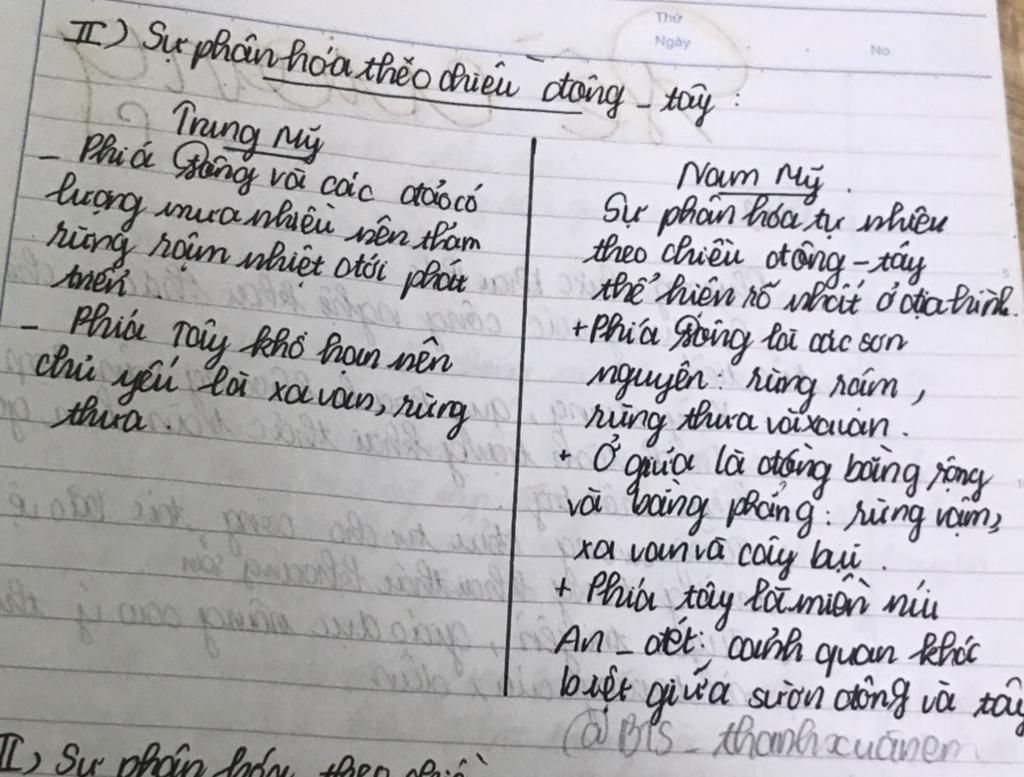 Thứ
Ngày
No
II) Sự phân hóa theo chiều đông - tây :
Trung Mỹ
- Phía Đông và các đảo có
lượng mưa nhiều nên thảm
rừng rậm nhiệt đới phát
triển.
- Phía Tây khô hạn nên
chủ yếu là xa van, rừng
thưa.
Nam Mỹ.
Sự phân hóa tự nhiên
theo chiều đông - tây
thể hiện rõ nhất ở địa hình.
+ Phía Đông là các sơn
nguyên: rừng rậm,
rừng thưa và xavan.
+ Ở giữa là đồng bằng rộng
và bằng phẳng: rừng rậm,
xa van và cây bụi.
+ Phía tây là miền núi
An - đét: cảnh quan khác
biệt giữa sườn đông và tây
@BTS_thanhxuanem
II) Sự phân hóa theo chiề